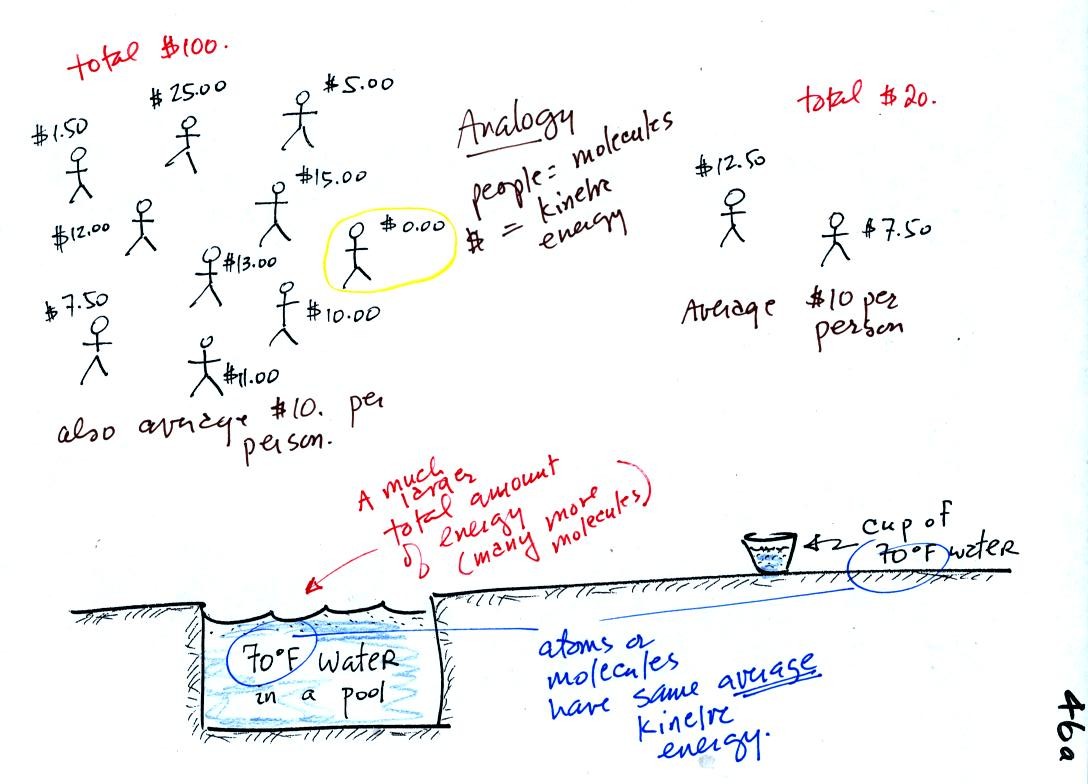 total $100.
$25.00
$5.00
$1.50
$15.00
$12.00
$0.00
$13.00
$7.50
$10.00
$11.00
also average $10. per
person.
Analogy
people = molecules
$ = kinetic
energy
total $20.
$12.50
$7.50
Average $10 per
person
A much
larger
total amount
of energy
(many more
molecules)
cup of
70°F water
70°F water
in a pool
atoms or
molecules
have same average
kinetic
energy.
46a